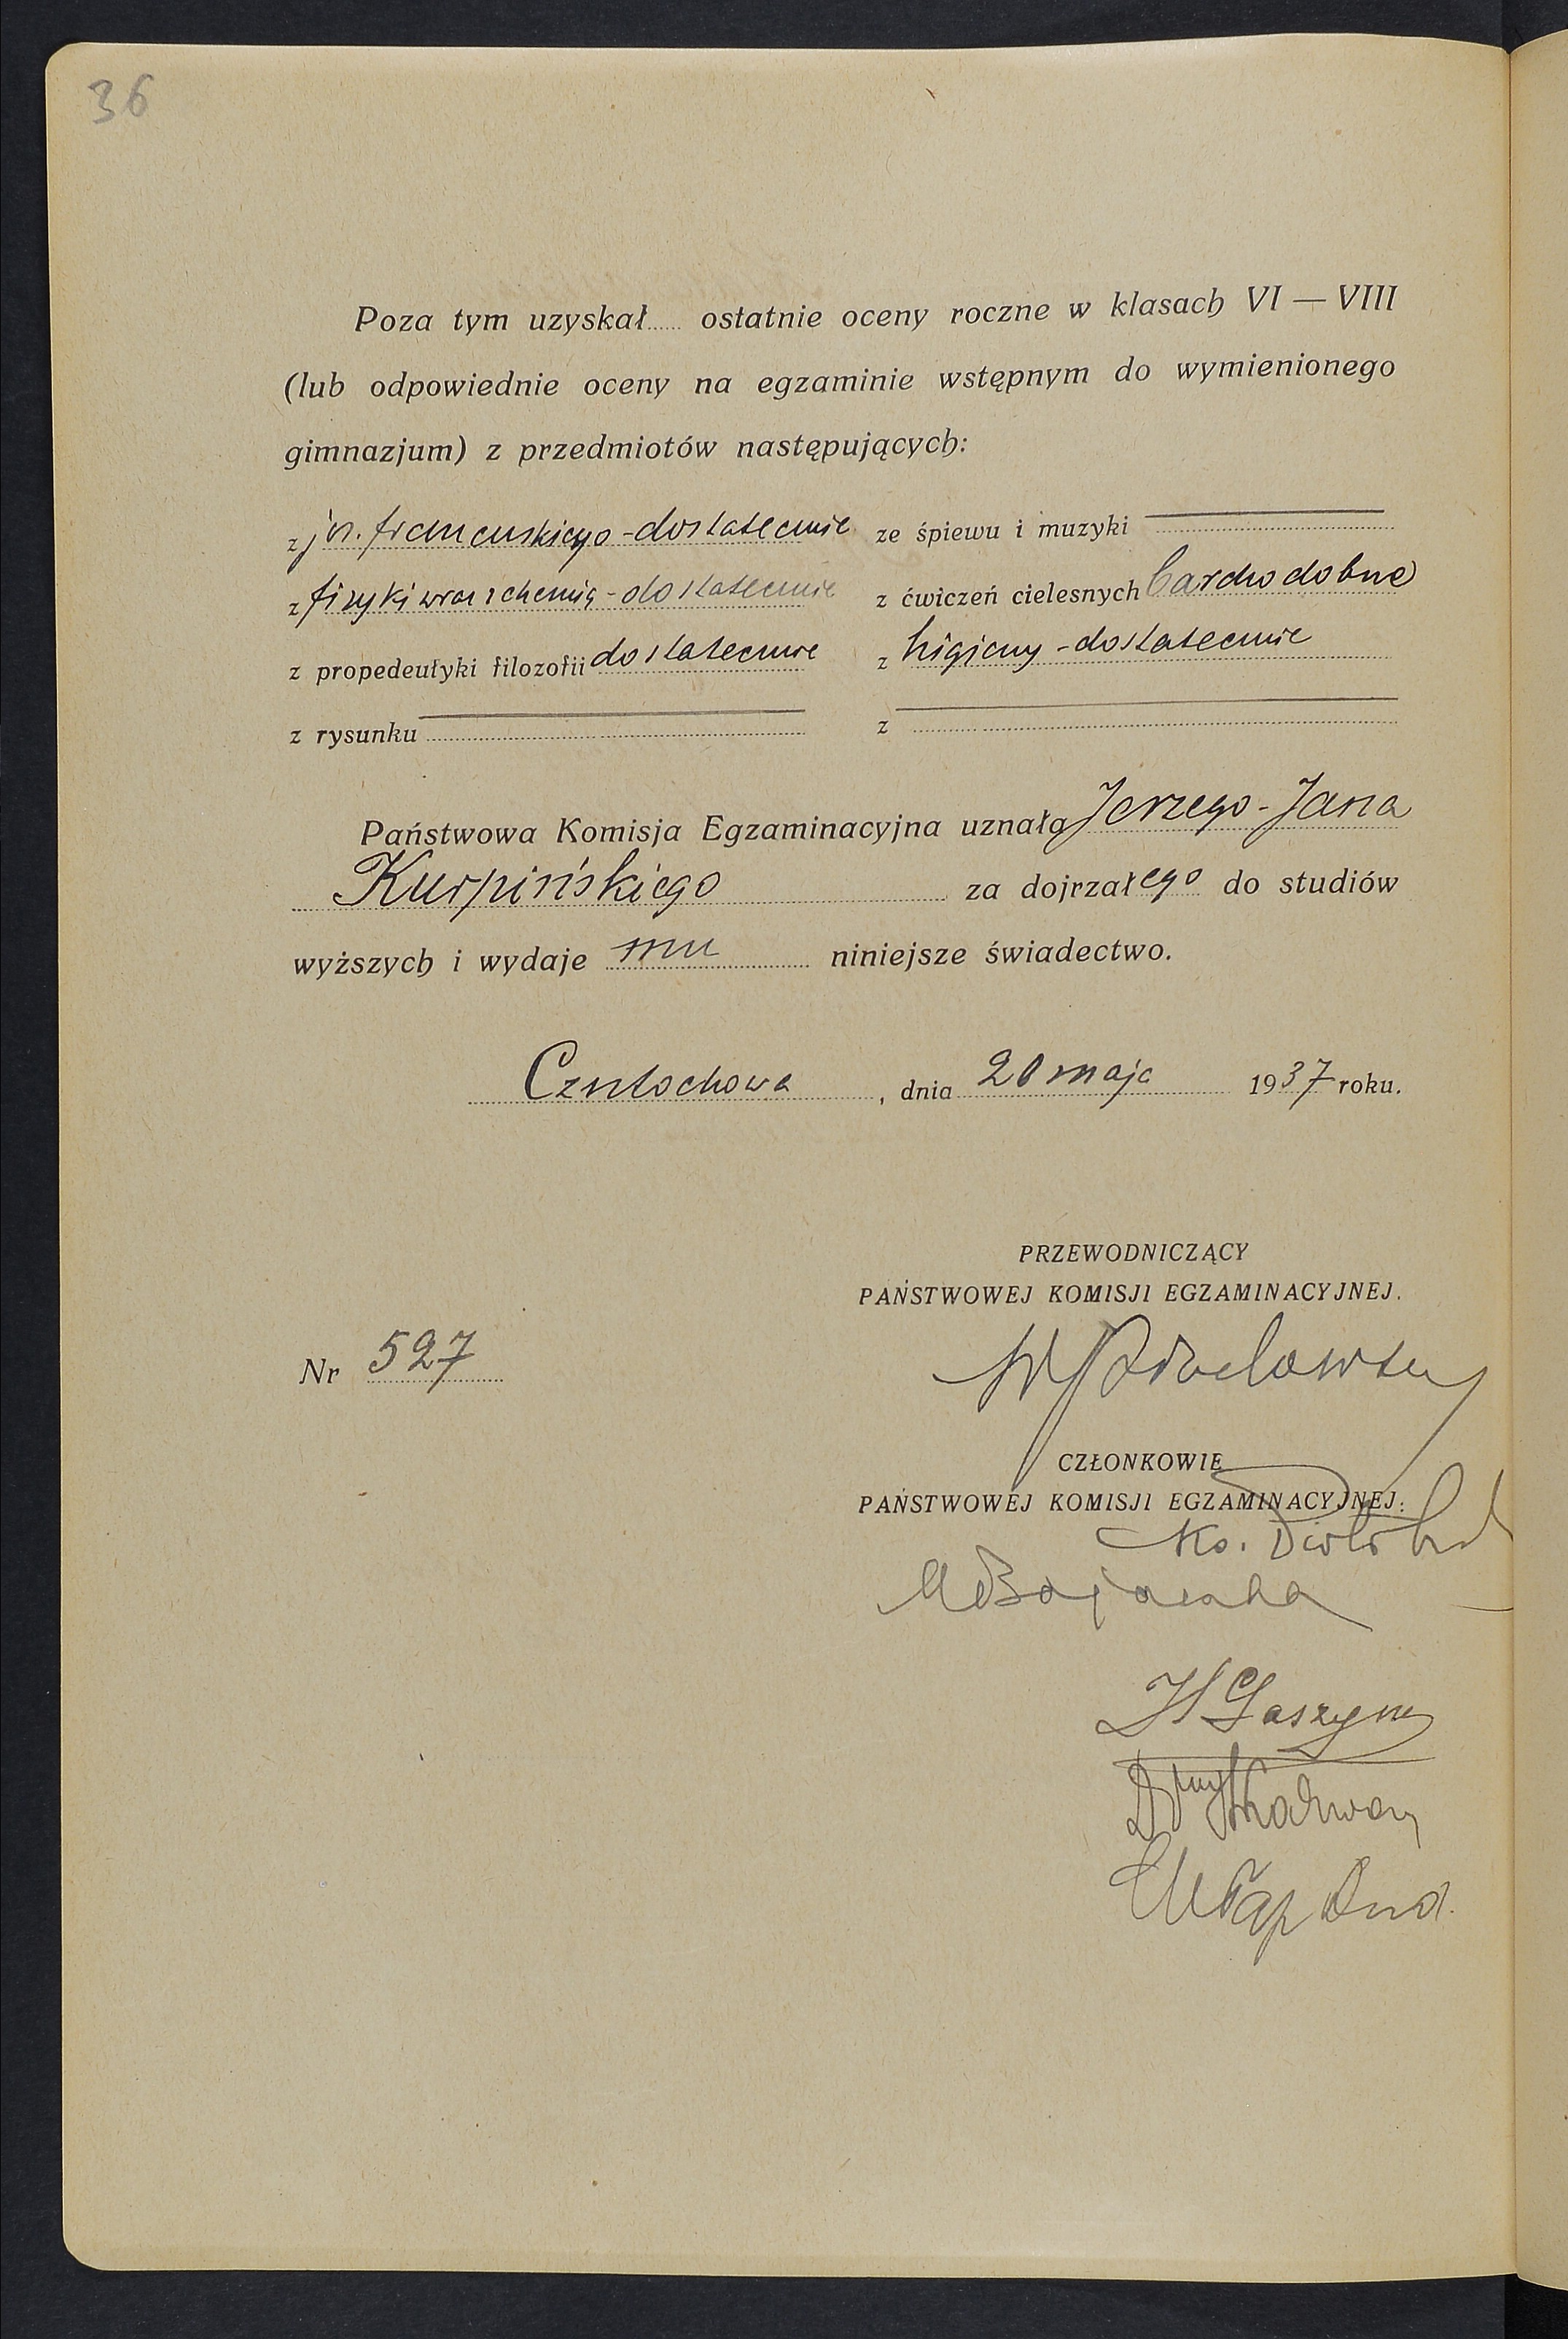 36
Poza tym uzyskał...... ostatnie oceny roczne w klasach VI — VIII
(lub odpowiednie oceny na egzaminie wstępnym do wymienionego
gimnazjum) z przedmiotów następujących:
z jęz. francuskiego - dostatecznie ze śpiewu i muzyki
z fizyki wraz z chemią - dostatecznie z ćwiczeń cielesnych bardzo dobre
z propedeutyki filozofii dostatecznie z higieny - dostatecznie
z rysunku z
Państwowa Komisja Egzaminacyjna uznała Jerzego - Jana
Kurpińskiego za dojrzałego do studiów
wyższych i wydaje mu niniejsze świadectwo.
Częstochowa, dnia 20 maja 1937 roku.
PRZEWODNICZĄCY
PAŃSTWOWEJ KOMISJI EGZAMINACYJNEJ.
Nr 527
CZŁONKOWIE
PAŃSTWOWEJ KOMISJI EGZAMINACYJNEJ:
Ks.